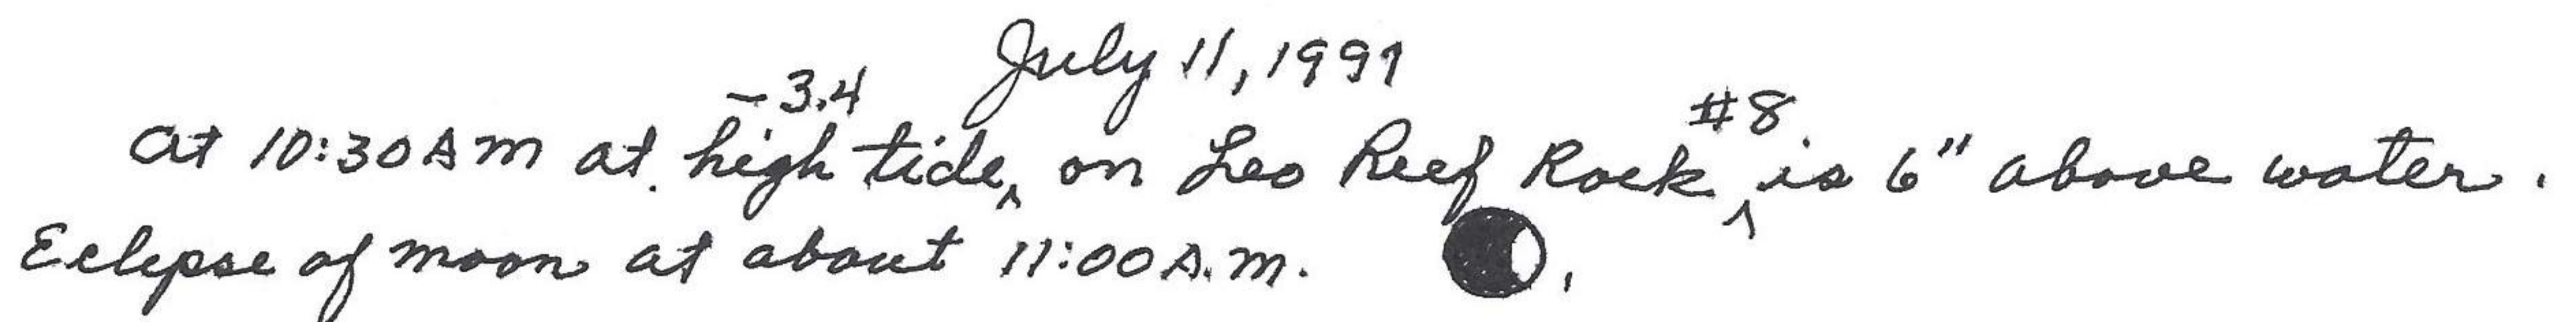 July 11, 1991
At 10:30 AM at high tide, -3.4 on Leo Reef Rock #8 is 6" above water.
Eclipse of moon at about 11:00 A.M.